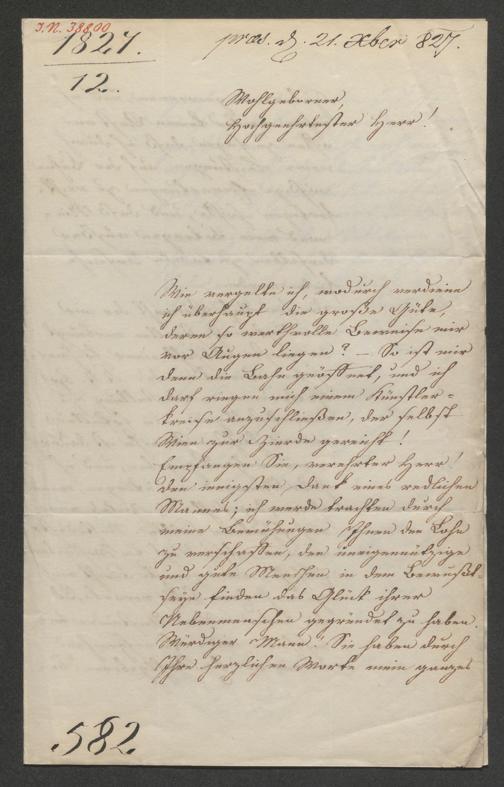 I.N. 38800
1827.
12.
præs. d. 21. Xber 827.
Wohlgeborner,
Hochgeehrtester Herr!
Wie vergelte ich, wodurch verdiene
ich überhaupt die große Güte,
deren so werthvolle Beweise mir
vor Augen liegen? – So ist mir
denn die Bahn geöffnet, und ich
darf mich einem Künstler-
kreise anzuschließen, der selbst
Wien zur Zierde gereicht!
Empfangen Sie, verehrter Herr!
den innigsten Dank eines redlichen
Mannes; ich werde trachten durch
meine Bemühungen Ihnen den Lohn
zu verschaffen, den uneigennützige
und gute Menschen in dem Bewußt-
seyn finden das Glück ihrer
Nebenmenschen gegründet zu haben.
Würdiger Mann! Sie haben durch
Ihre herzlichen Worte mein ganzes
582.